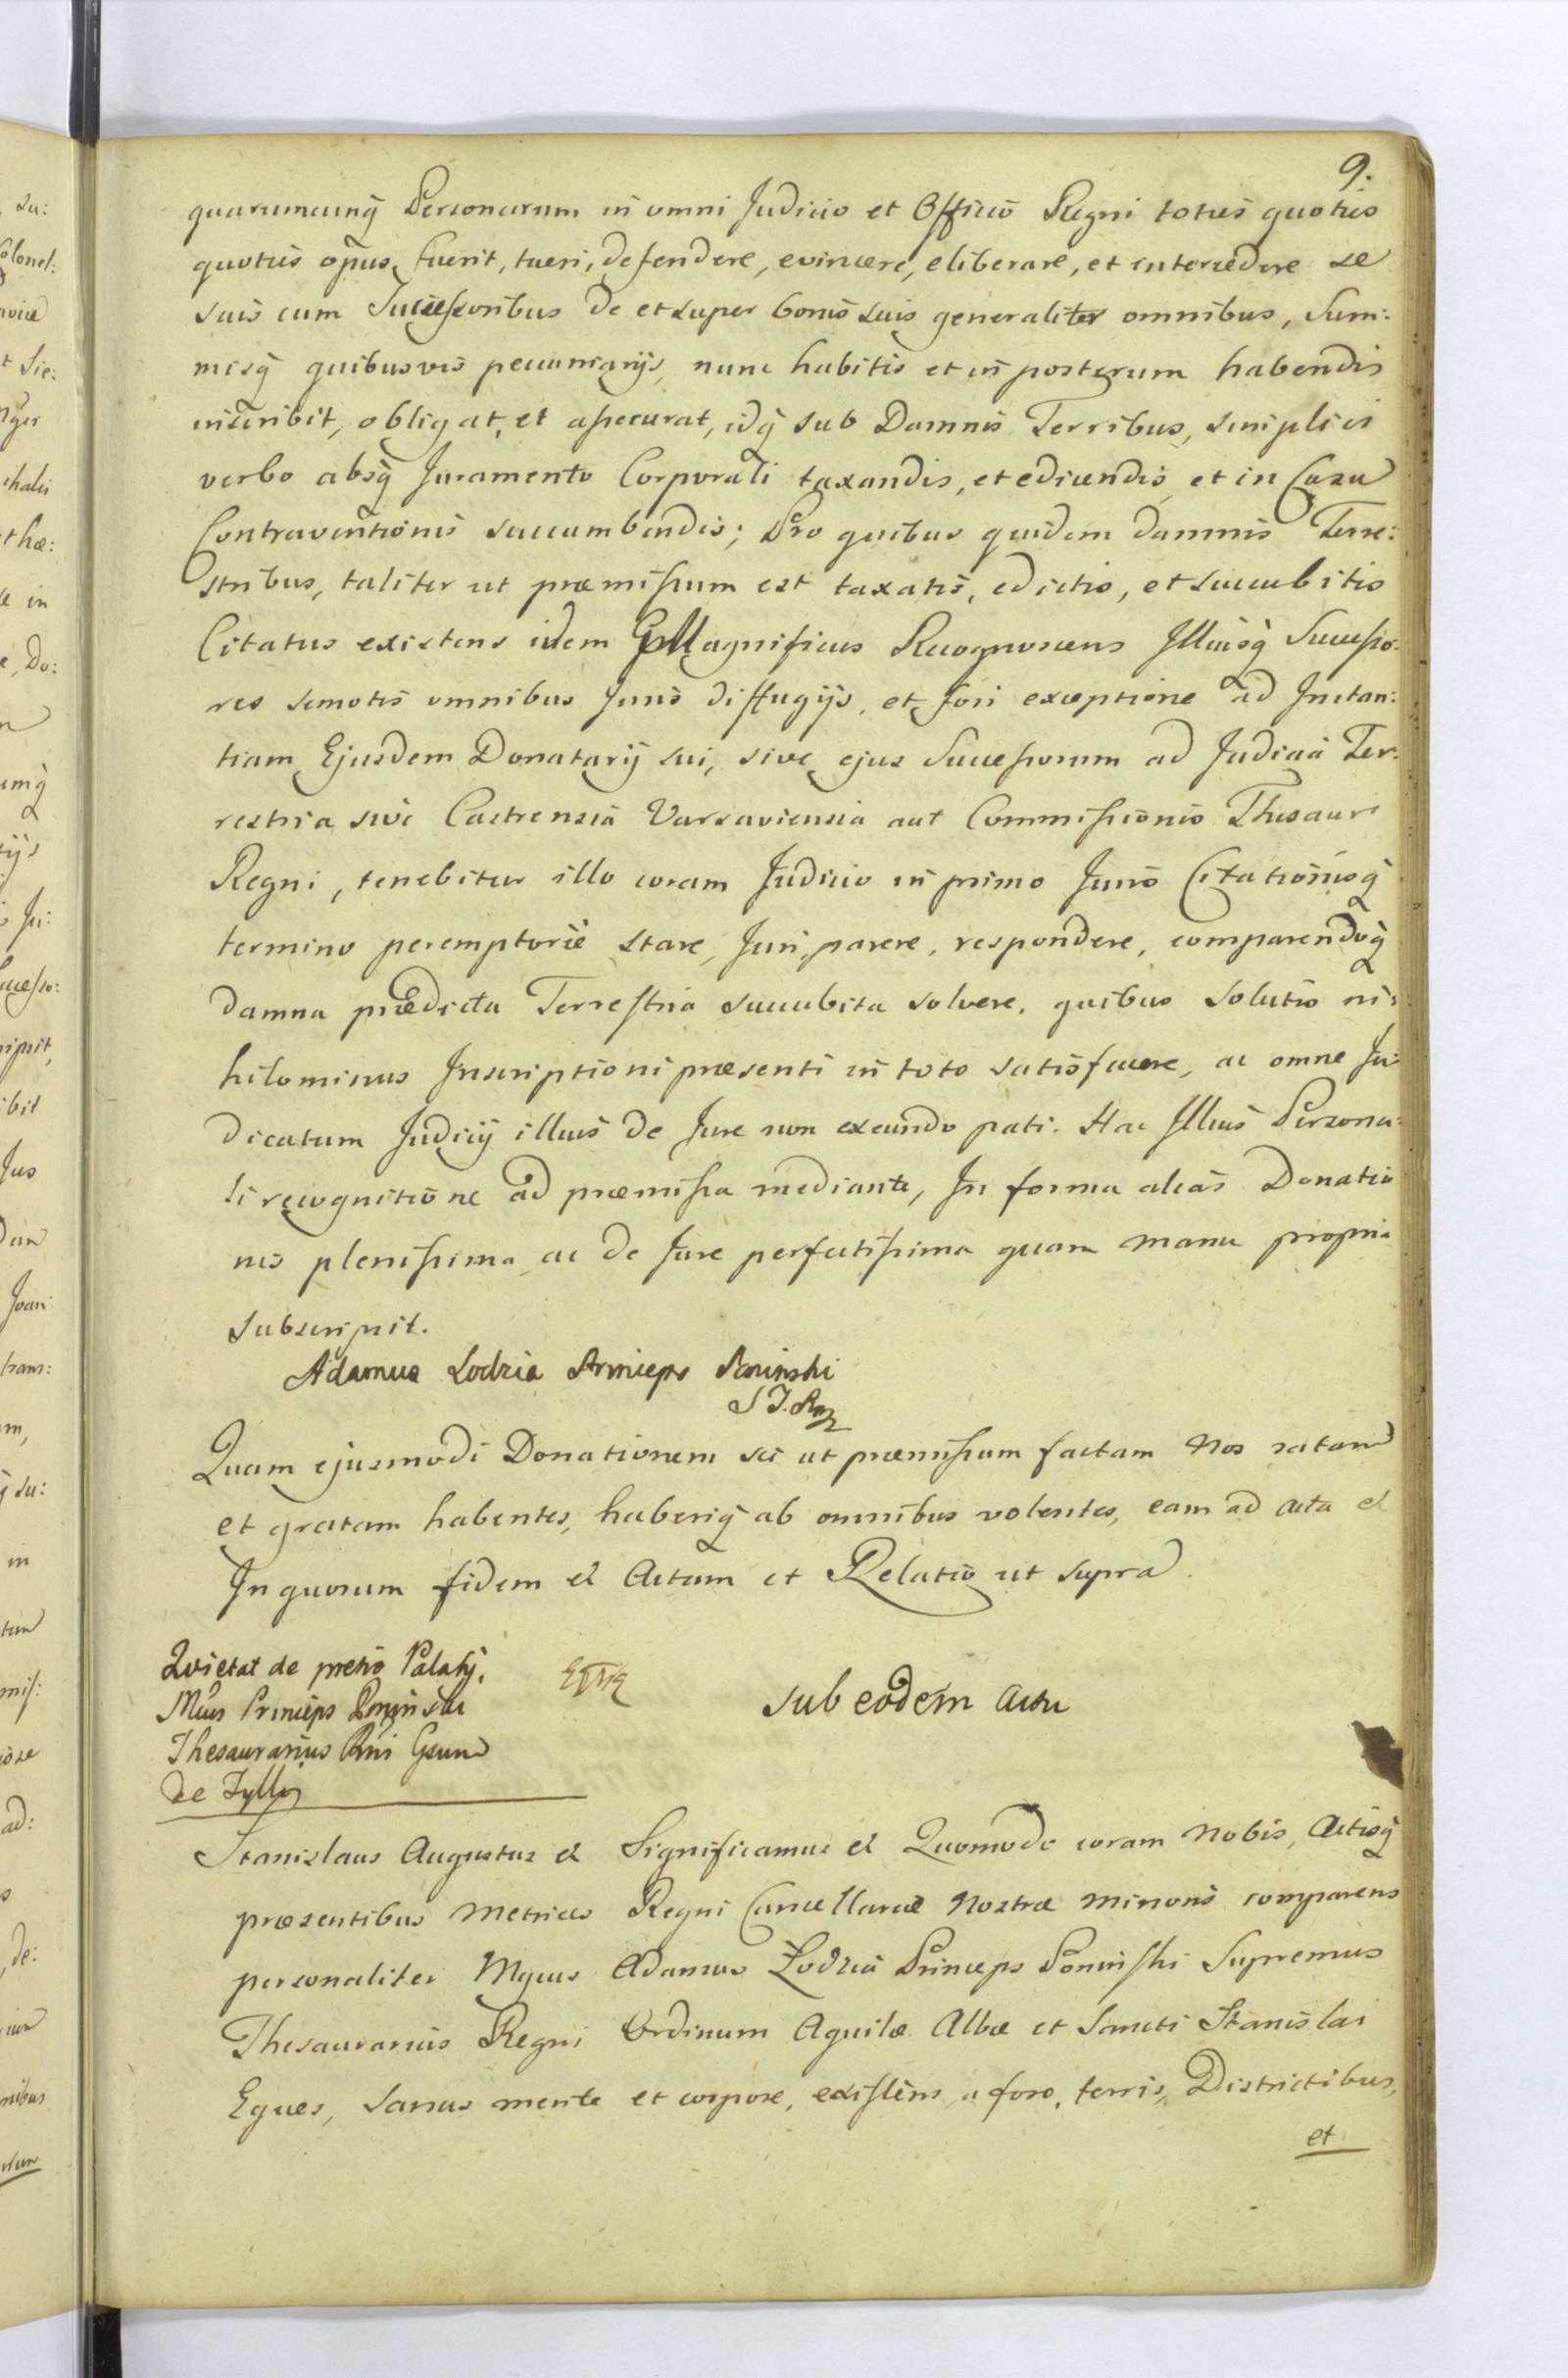 9.
quarumcunq̃ Personarum in omni Judicio et Officio Regni toties quoties
quoties opus fuerit, tueri, defendere, evincere, eliberare, et intercedere se
suis cum Successoribus de et super bonis suis generaliter omnibus, Sum:
misq̃ quibusvis pecuniarijs, nunc habitis et in posterum habendis
inscribit, obligat, et assecurat, idq̃ sub Damnis Terribus, simplici
verbo absq̃ Juramento Corporali taxandis, et edicendis, et in Casu
Contraventionis succumbendis; Pro quibus quidem damnis Terre:
stribus, taliter ut præmissum est taxatis, edictis, et succubitis
Citatus existens idem Magnificus Recognoscens Illiusq̃ Successo:
res semotis omnibus Juris diffugijs, et fori exceptione ad Instan:
tiam Ejusdem Donatarij sui, sive ejus Successorum ad Judicia Ter:
restria sive Castrensia Varsaviensia aut Commissionis Thesauri
Regni, tenebitur illo coram Judicio in primo Juris Citationisq̃
termino peremptorie stare, Juri parere, respondere, comparendoq̃
damna prædicta Terrestria succubita solvere, quibus solutis ni:
hilominus Inscriptioni præsenti in toto satisfacere, ac omne Ju:
dicatum Judicij illius de Jure non exeundo pati. Hac Illius Persona:
li recognitione ad præmissa mediante, In forma alias Donatio
nis plenissima ac de Jure perfectissima quam manu propria
subscripsit.
Adamus Lodzia Princeps Poninski
S T. Rg
Quam ejusmodi Donationem sic ut præmissum factam Nos ratam
et gratam habentes, haberiq̃ ab omnibus volentes, eam ad acta et
In quorum fidem et Actum et Relatio ut supra.
Quietat de pretio Palatij.
Mcus Princeps Poninski
Thesaurarius Rni Gsum
de Tyller
sub eodem actu
Stanislaus Augustus et Significamus et Quomodo coram Nobis, Actisq̃
præsentibus Metrices Regni Cancellariæ Nostræ Minoris comparens
personaliter Mgcus Adamus Łodzia Princeps Poninski Supremus
Thesaurarius Regni Ordinum Aquilæ Albæ et Sancti Stanislai
Eques, sanus mente et corpore, existens, a foro, terris, Districtibus,
et